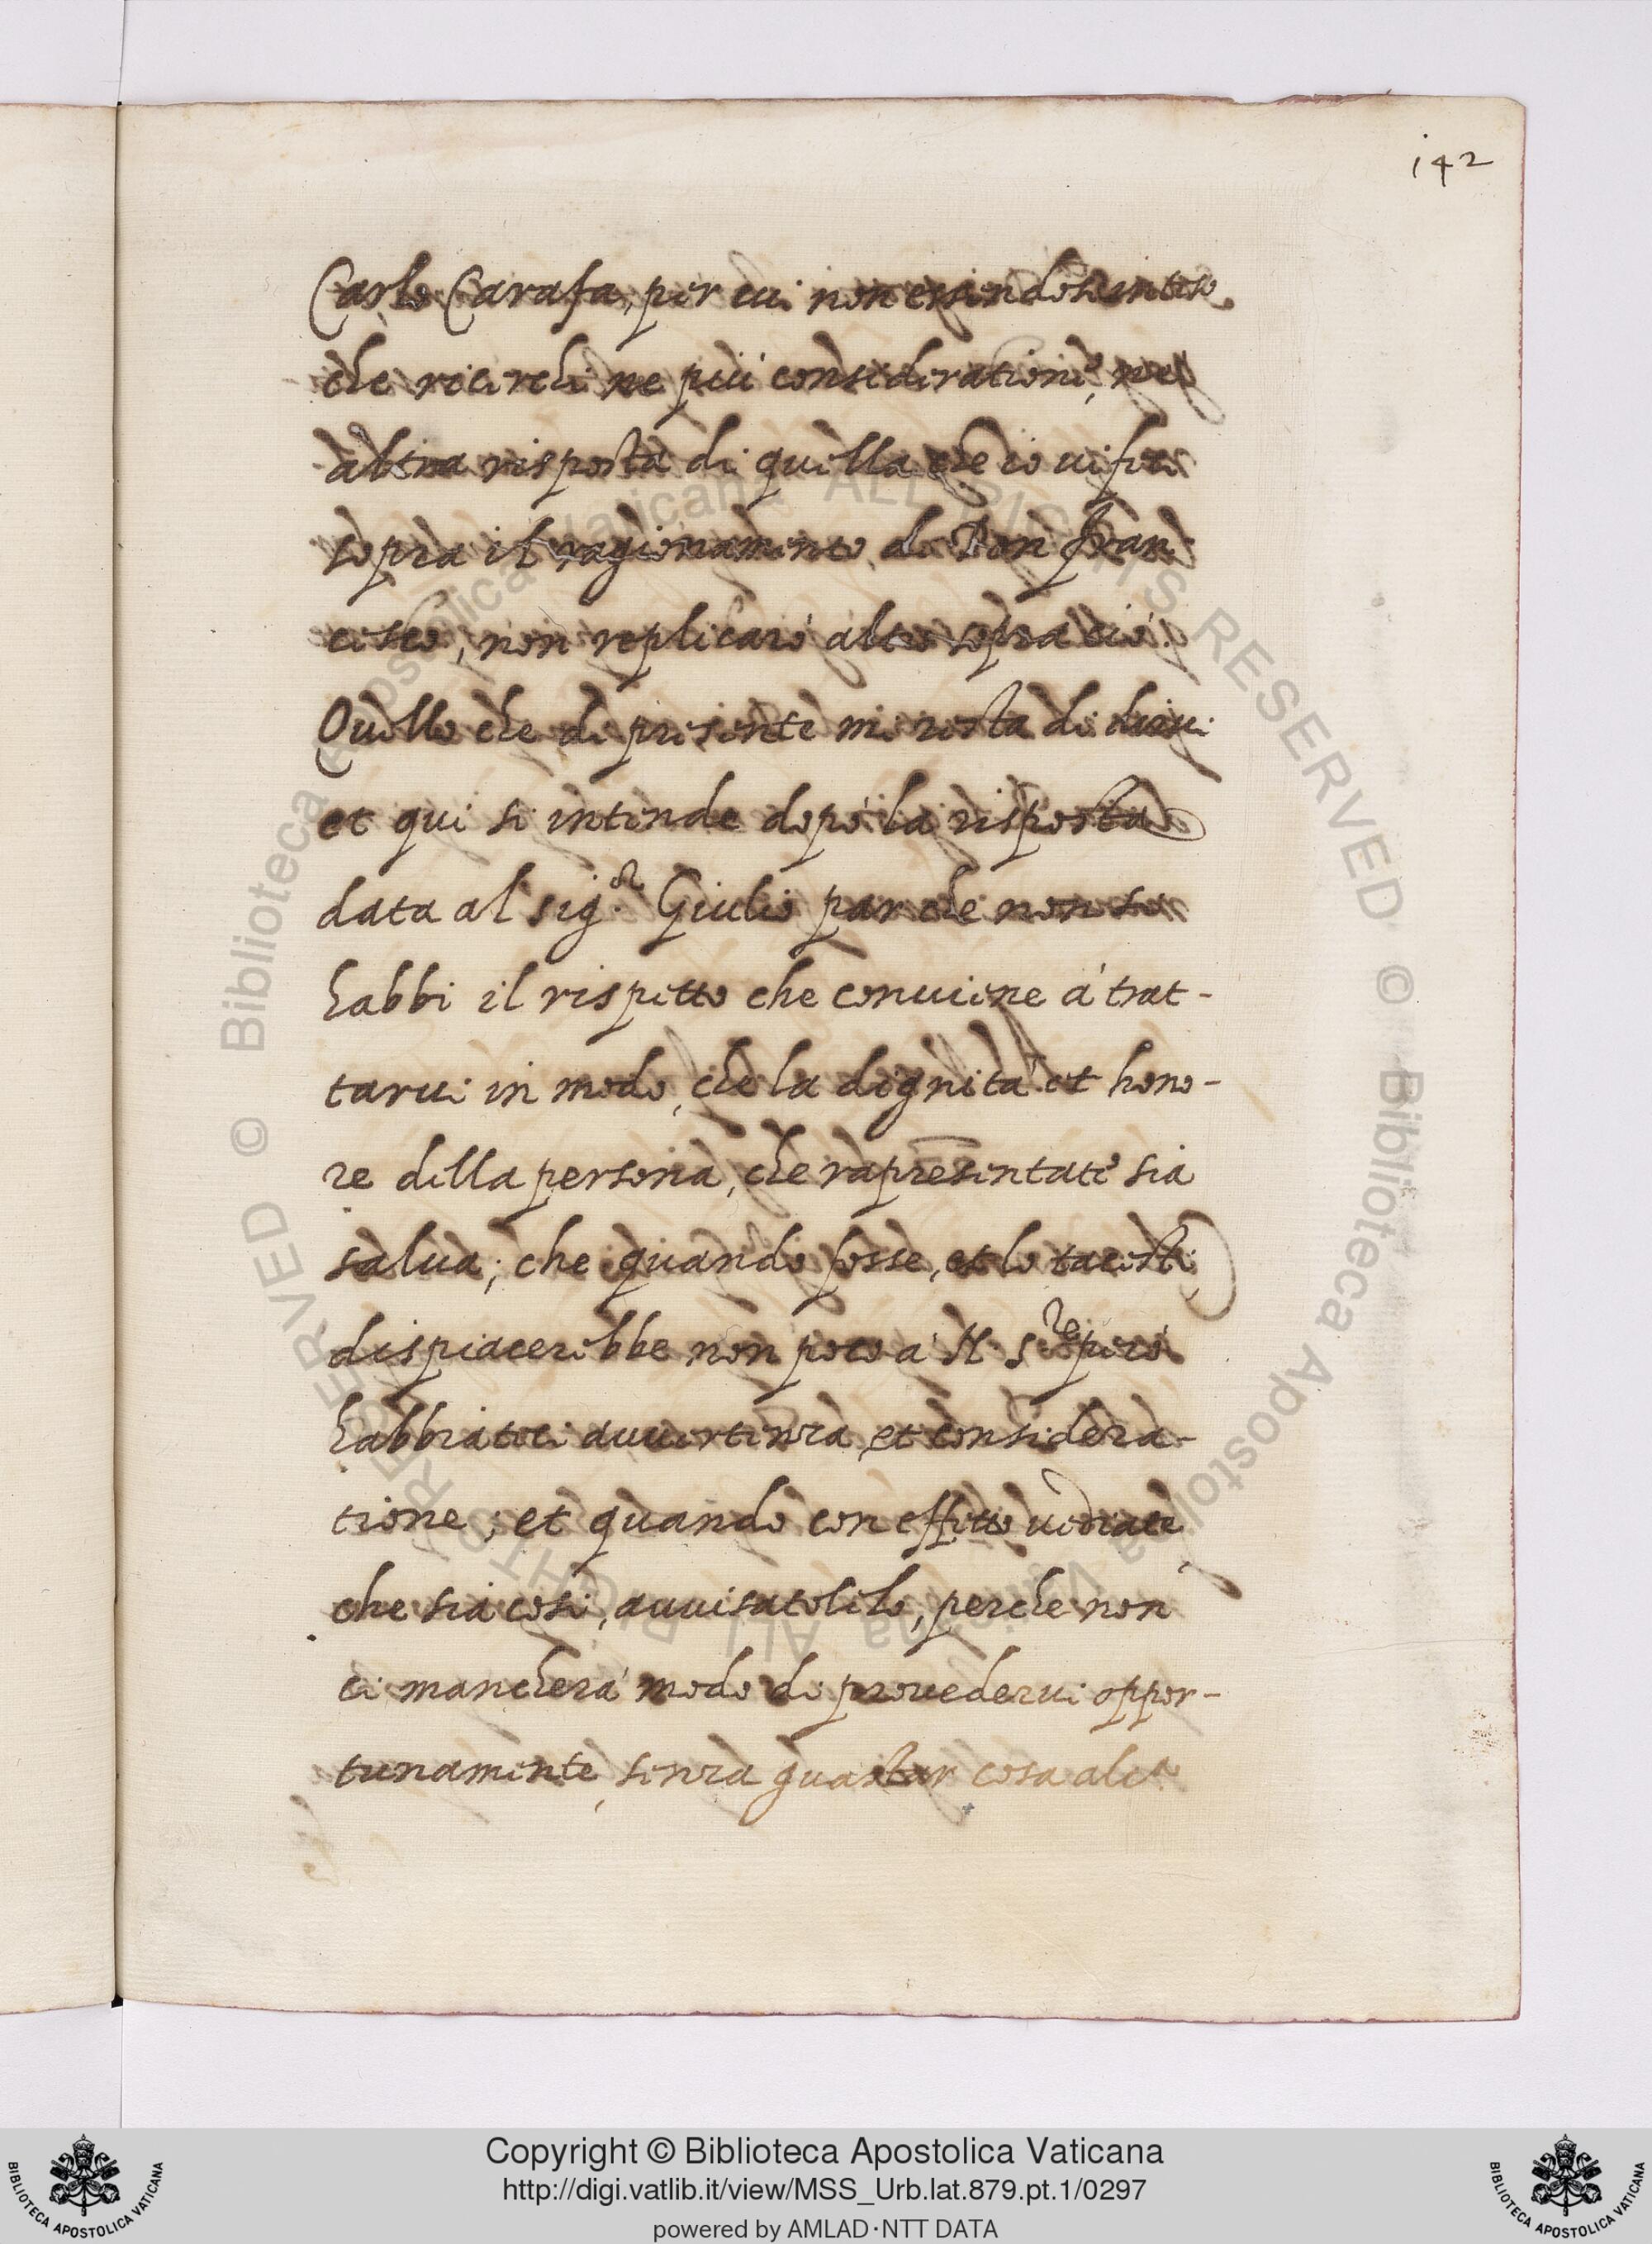 142
Carlo Carafa, per cui non essendosi inteso
che ricerchi ne più considerationi, ne
altra risposta di quella che io vi feci
sopra il ragionamento di Don Fran
cisco, non replicarò altro sopra ciò.
Quello che di presente mi resta di dirvi
et qui si intende dopò la risposta
data al sig.r Giulio par che non si
habbi il rispetto che conviene á trat-
tarvi in modo, che la dignitá et hono-
re della persona, che rapresentate sia
salva; che quando fosse, et lo taceste
dispiacerebbe non poco á N. S.re però
habbiateci avvertenza, et considera-
tione; et quando con effetto vediate
che sia così, avvisatelilo, perche non
ci mancherá modo di provedervi oppor-
tunamente, senza guastar cosa alc.a
© Biblioteca Apostolica Vaticana ALL RIGHTS RESERVED
© Biblioteca Apostolica Vaticana ALL RIGHTS RESERVED
Copyright © Biblioteca Apostolica Vaticana
http://digi.vatlib.it/view/MSS_Urb.lat.879.pt.1/0297
powered by AMLAD·NTT DATA
BIBLIOTECA APOSTOLICA VATICANA
BIBLIOTECA APOSTOLICA VATICANA